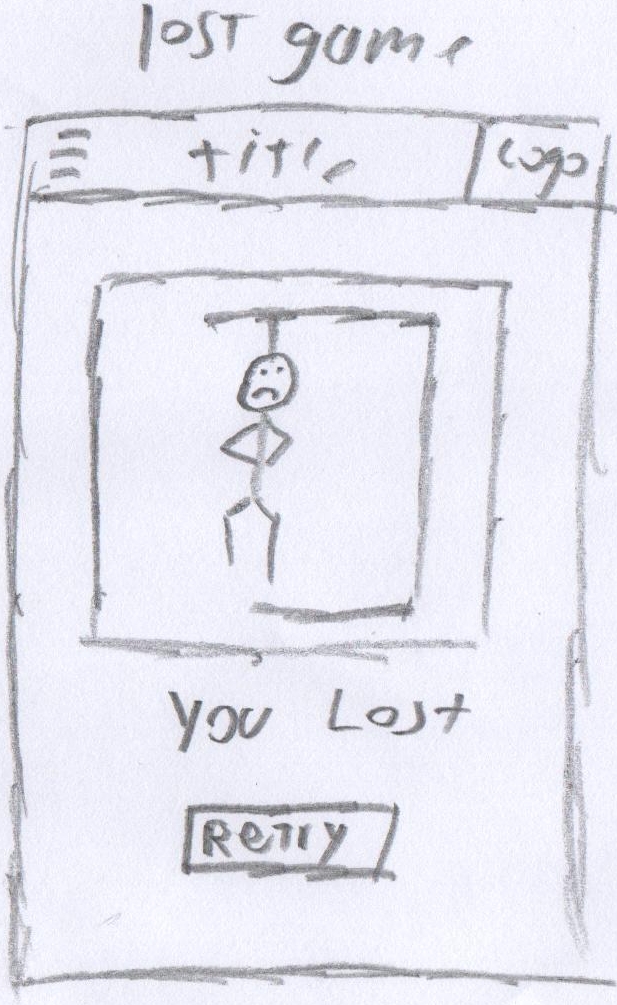 lost game
title Logo
You Lost
Retry